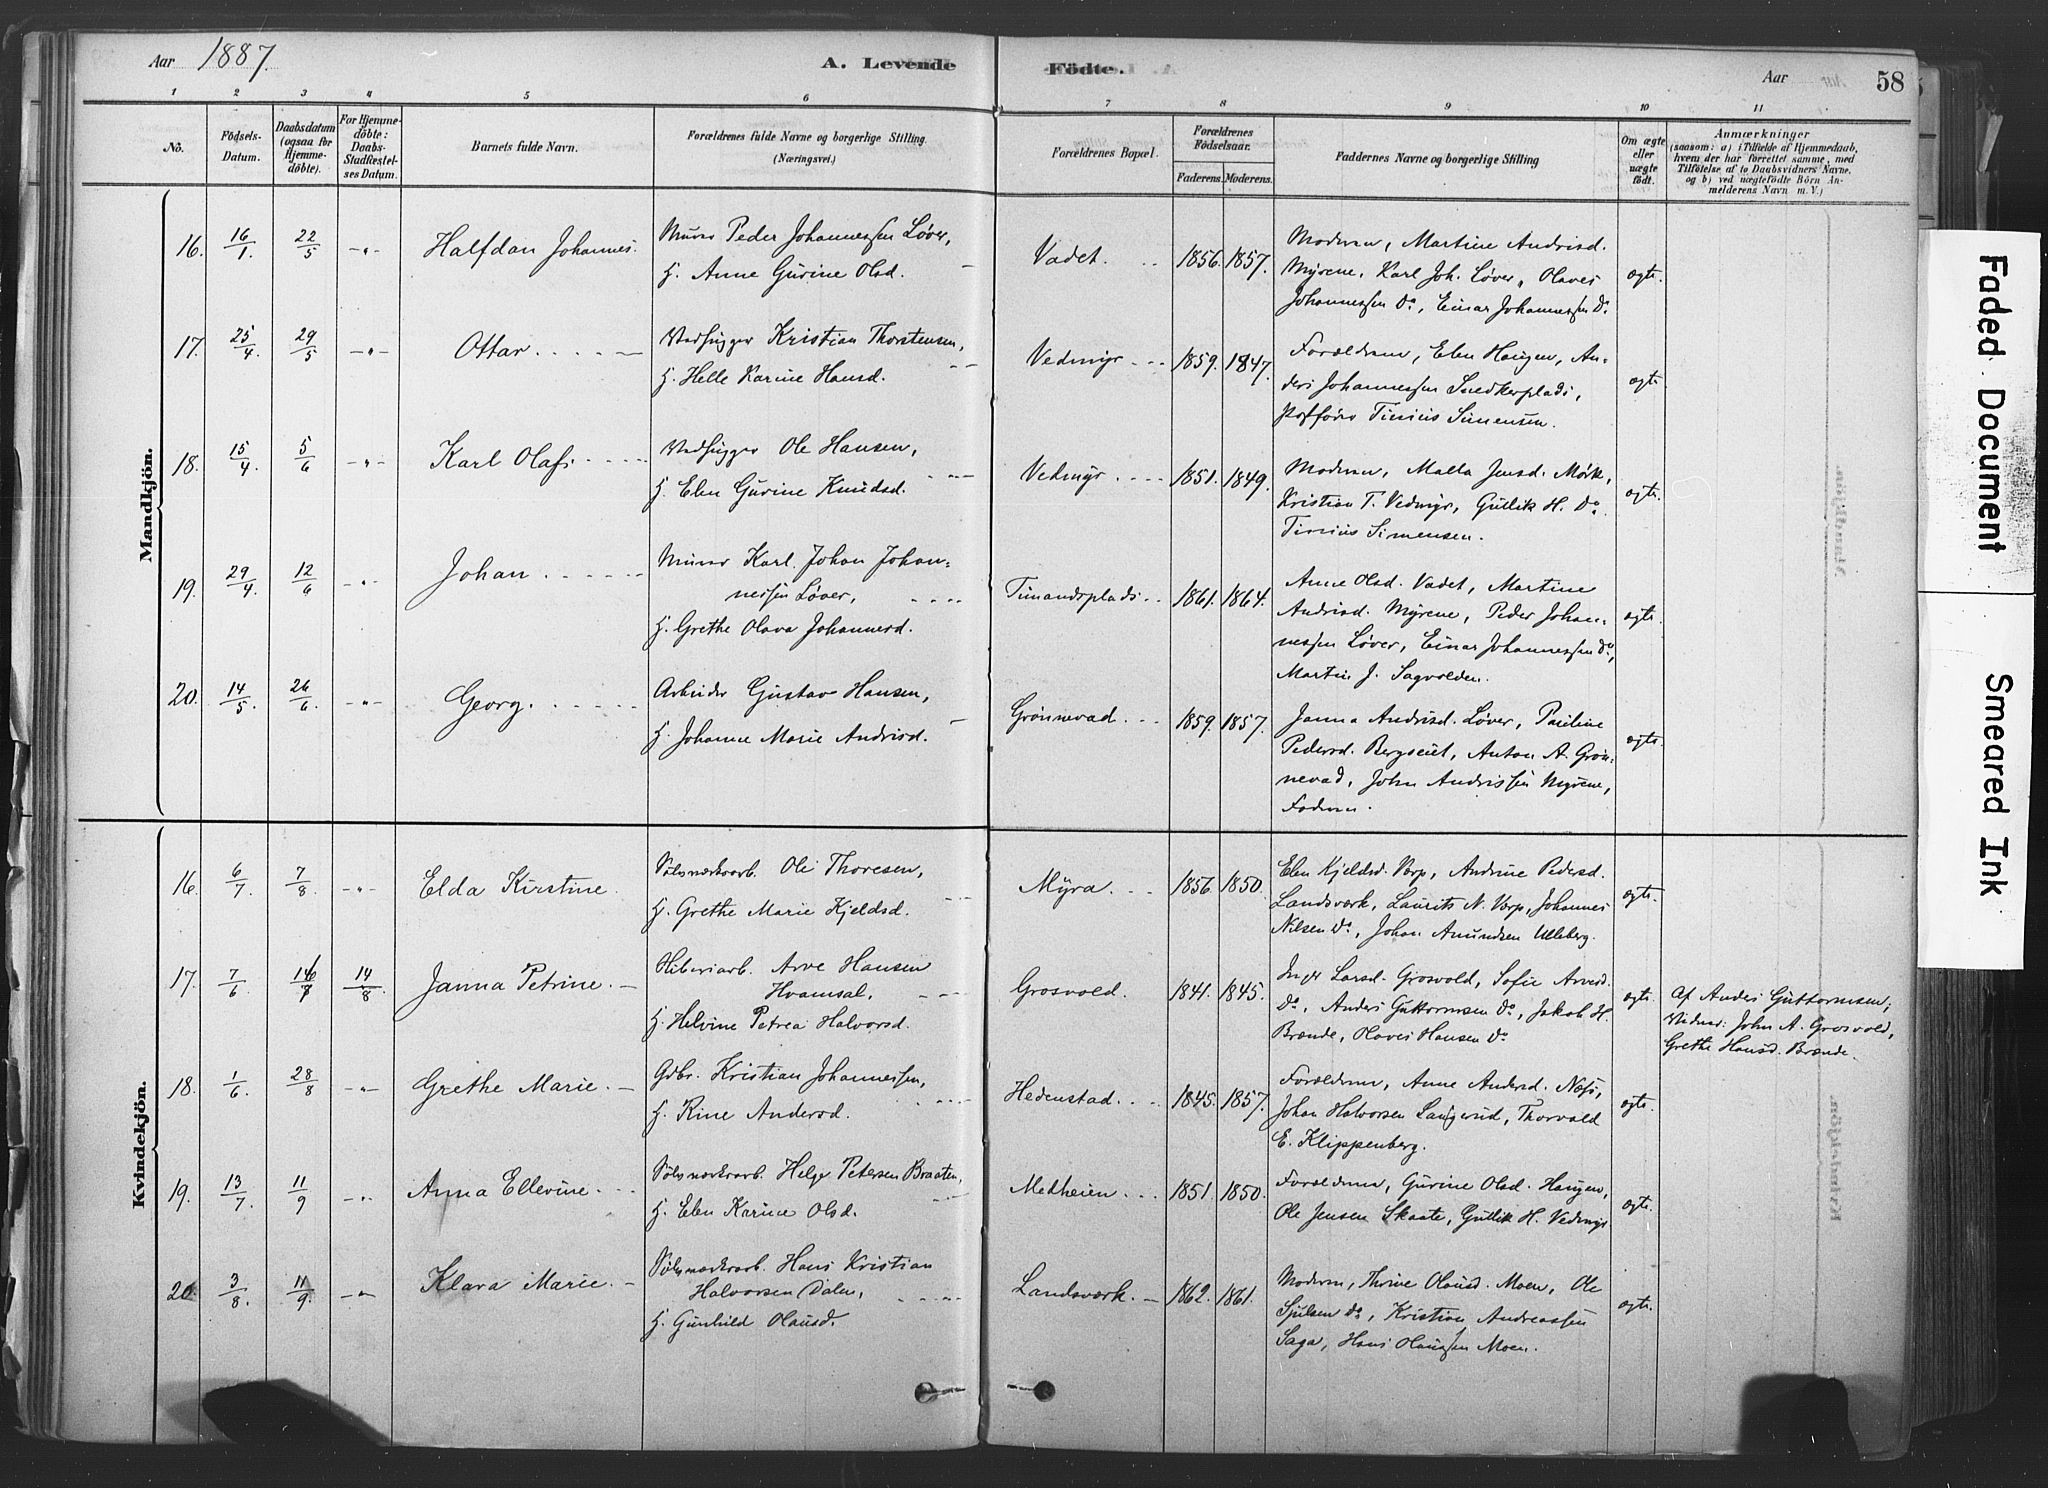 Aar 1887. A. Levende Födte. Aar 58
1 2 3 4 5 6 7 8 9 10 11
No. Födsels-Datum. Daabsdatum (ogsaa for Hjemmedöbte). For Hjemmedöbte: Daabs-Stadfæstelses Datum. Barnets fulde Navn. Forældrenes fulde Navne og borgerlige Stilling. (Næringsvei.) Forældrenes Bopæl. Forældrenes Födselsaar. Faderens. Moderens. Faddernes Navne og borgerlige Stilling Om ægte eller uægte födt. Anmærkninger
(saasom: a) i Tilfælde af Hjemmedaab,
hvem der har forrettet samme, med
Tilföielse af to Daabsvidners Navne,
og b) ved uægtefödte Börn An-
melderens Navn m. V.)
Mandkjön.
16. 16/1. 22/5 -„- Halfdan Johannes. Murer Peder Johannessen Løver, Vadet. 1856. 1857. Moderen, Martine Andrisd. ægte.
H. Anne Gurine Olsd. Myrene, Karl Joh. Løver, Olaves
Johannessen Do, Einar Johannessen Do
17. 25/4. 29/5 -„- Ottar. Vedhugger Kristian Thorstensen, Vedmyr 1859. 1847. Forældrene, Elen Haugen, An- ægte.
H. Helle Karine Hansd. ders Johannessen Snedkerplads,
Tinius Simensen.
18. 15/4. 5/6 -„- Karl Olaf. Vedhugger Ole Hansen, Vedmyr 1851. 1849. Moderen, Malla Jensd. Mørk, ægte.
H. Elen Gurine Knudsd. Kristian T. Vedmyr, Gullik H. Do
Tinius Simensen.
19. 29/4. 12/6 -„- Johan. Murer Karl Johan Johan- Timandsplads 1861. 1864. Anne Olsd. Vadet, Martine ægte.
nessen Løver, Andrisd. Myrene, Peder Johan-
H. Grethe Olava Johannesd. nessen Løver, Einar Johannessen Do,
Martin J. Sagvolden.
20. 14/5. 26/6. -„- Georg. Arbeider Gustav Hansen, Grønnevad 1859. 1857. Janna Andrisd. Løver, Pauline ægte.
H. Johanne Marie Andrisd. Pedersd. Bergseiet, Anton A. Grøn-
nevad, John Andrissen Myrene,
Faderen.
Kvindekjön.
16. 6/7. 7/8 -„- Elda Kirstine. Sølvværksarb. Ole Thoresen, Myra 1856. 1850. Elen Kjeldsd. Værp, Andrine Pedersd. ægte.
H. Grethe Marie Kjeldsd. Landsværk, Laurits N. Værp, Johannes
Nilsen Do, Johan Amundsen Ulleberg.
17. 7/6 14/8 14/8. Janna Petrine. Arve Hansen Grosvold. 1841. 1845. Inger Larsd. Grosvold, Sofie Arvesd. ægte. Af Anders Guttormsen;
Hvamsal, Do, Anders Guttormsen Do, Jakob H. Vidner: John A. Grosvold,
H. Helvine Petrea Halvorsd. Brænde, Olaves Hansen Do Grethe Hansd. Brænde.
18. 1/6. 28/8 -„- Grethe Marie. Gdbr. Kristian Johannessen, Hedenstad 1845. 1857. Forældrene, Anne Andersd. Næss, ægte.
H. Rine Andersd. Johan Halvorsen Langerud, Thorvald
E. Klippenberg.
19. 13/7. 11/9 -„- Anna Ellevine. Sølvværksarb. Helge Petersen Braaten, Medheien 1851. 1850. Forældrene, Gurine Olsd. Haugen, ægte.
H. Elen Karine Olsd. Ole Jensen Skaate, Gullik H. Vedmyr
20. 3/8. 11/9. -„- Klara Marie. Sølvværksarb. Hans Kristian Landsværk. 1862. 1861. Moderen, Thrine Olausd. Moen, Ole ægte.
Halvorsen Dalen, Sjulsen Do, Kristian Andreassen
H. Gunhild Olausd. Saga, Hans Olaussen Moen.
Faded Document
Smeared Ink